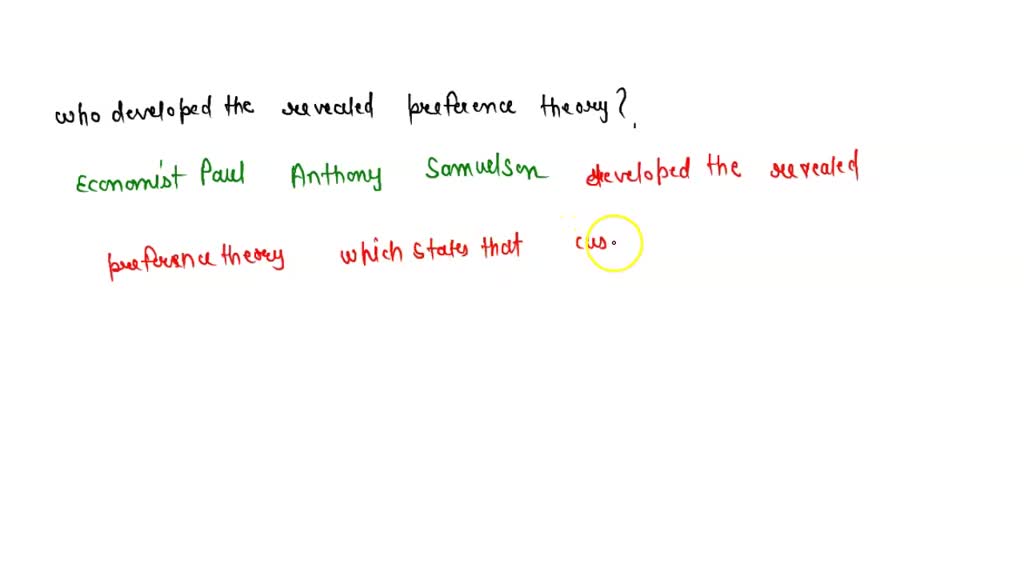 who developed the revealed preference theory?
Economist Paul Anthony Samuelson developed the revealed
preference theory which states that cus